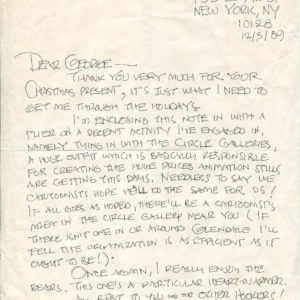 NEW YORK, NY
10128
12/3/89
DEAR GEORGE—
THANK YOU VERY MUCH FOR YOUR
CHRISTMAS PRESENT, IT'S JUST WHAT I NEED TO
GET ME THROUGH THE HOLIDAYS.
I'M ENCLOSING THIS NOTE IN WITH A
FLIER ON A RECENT ACTIVITY I'VE ENGAGED IN,
NAMELY THING IN WITH THE CIRCLE GALLERIES,
A HUGE OUTFIT WHICH IS BASICALLY RESPONSIBLE
FOR CREATING THE HUGE PRICES ANIMATION STILLS
ARE GETTING THIS DAYS. NEEDLESS TO SAY WE
CARTOONISTS HOPE HE'LL DO THE SAME FOR US!
IF ALL GOES AS HOPED, THERE'LL BE A CARTOONISTS
AREA IN THE CIRCLE GALLERY NEAR YOU (IF
THERE ISN'T ONE IN OR AROUND GLENDALE I'LL
FEEL THE ORGANIZATION IS AS EFFICIENT AS IT
OUGHT TO BE!)
ONCE AGAIN, I REALLY ENJOY THE
BEARS. THIS ONE'S A PARTICULAR HEART-WARMER.
ALL BEST TO YOU AND THE OTHER